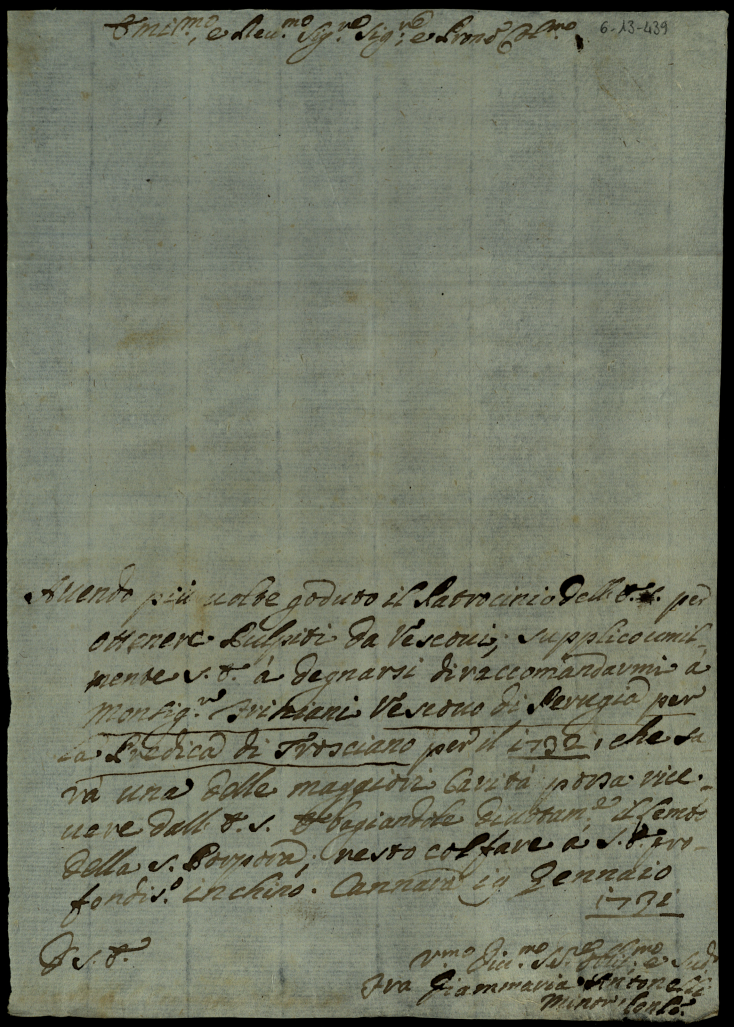 Emi.mo, e Reu.mo Sig.re Sig.re, e Prone Col.mo
6-13-439
Auendo più uolte goduto il Patrocinio dell' E.V. per
ottenere Pulpiti da Vescoui, supplico umil-
mente V.E. à degnarsi di raccomandarmi à
Monsig.re Vescouo di Perugia per
la Predica di Fosciano per il 1732, che sa-
rà una delle maggiori Carità possa rice-
uere dall' E.V. E bagiandole diuotam.te il lembo
della S. Porpora, resto col fare à V.E. pro-
fondis.o inchino. Cannara 19 Gennaio
1731
D V.E.
V.mo Diu.mo Ser.e Obl.mo e
Fra Giammaria Antonelli
Minor Conle.